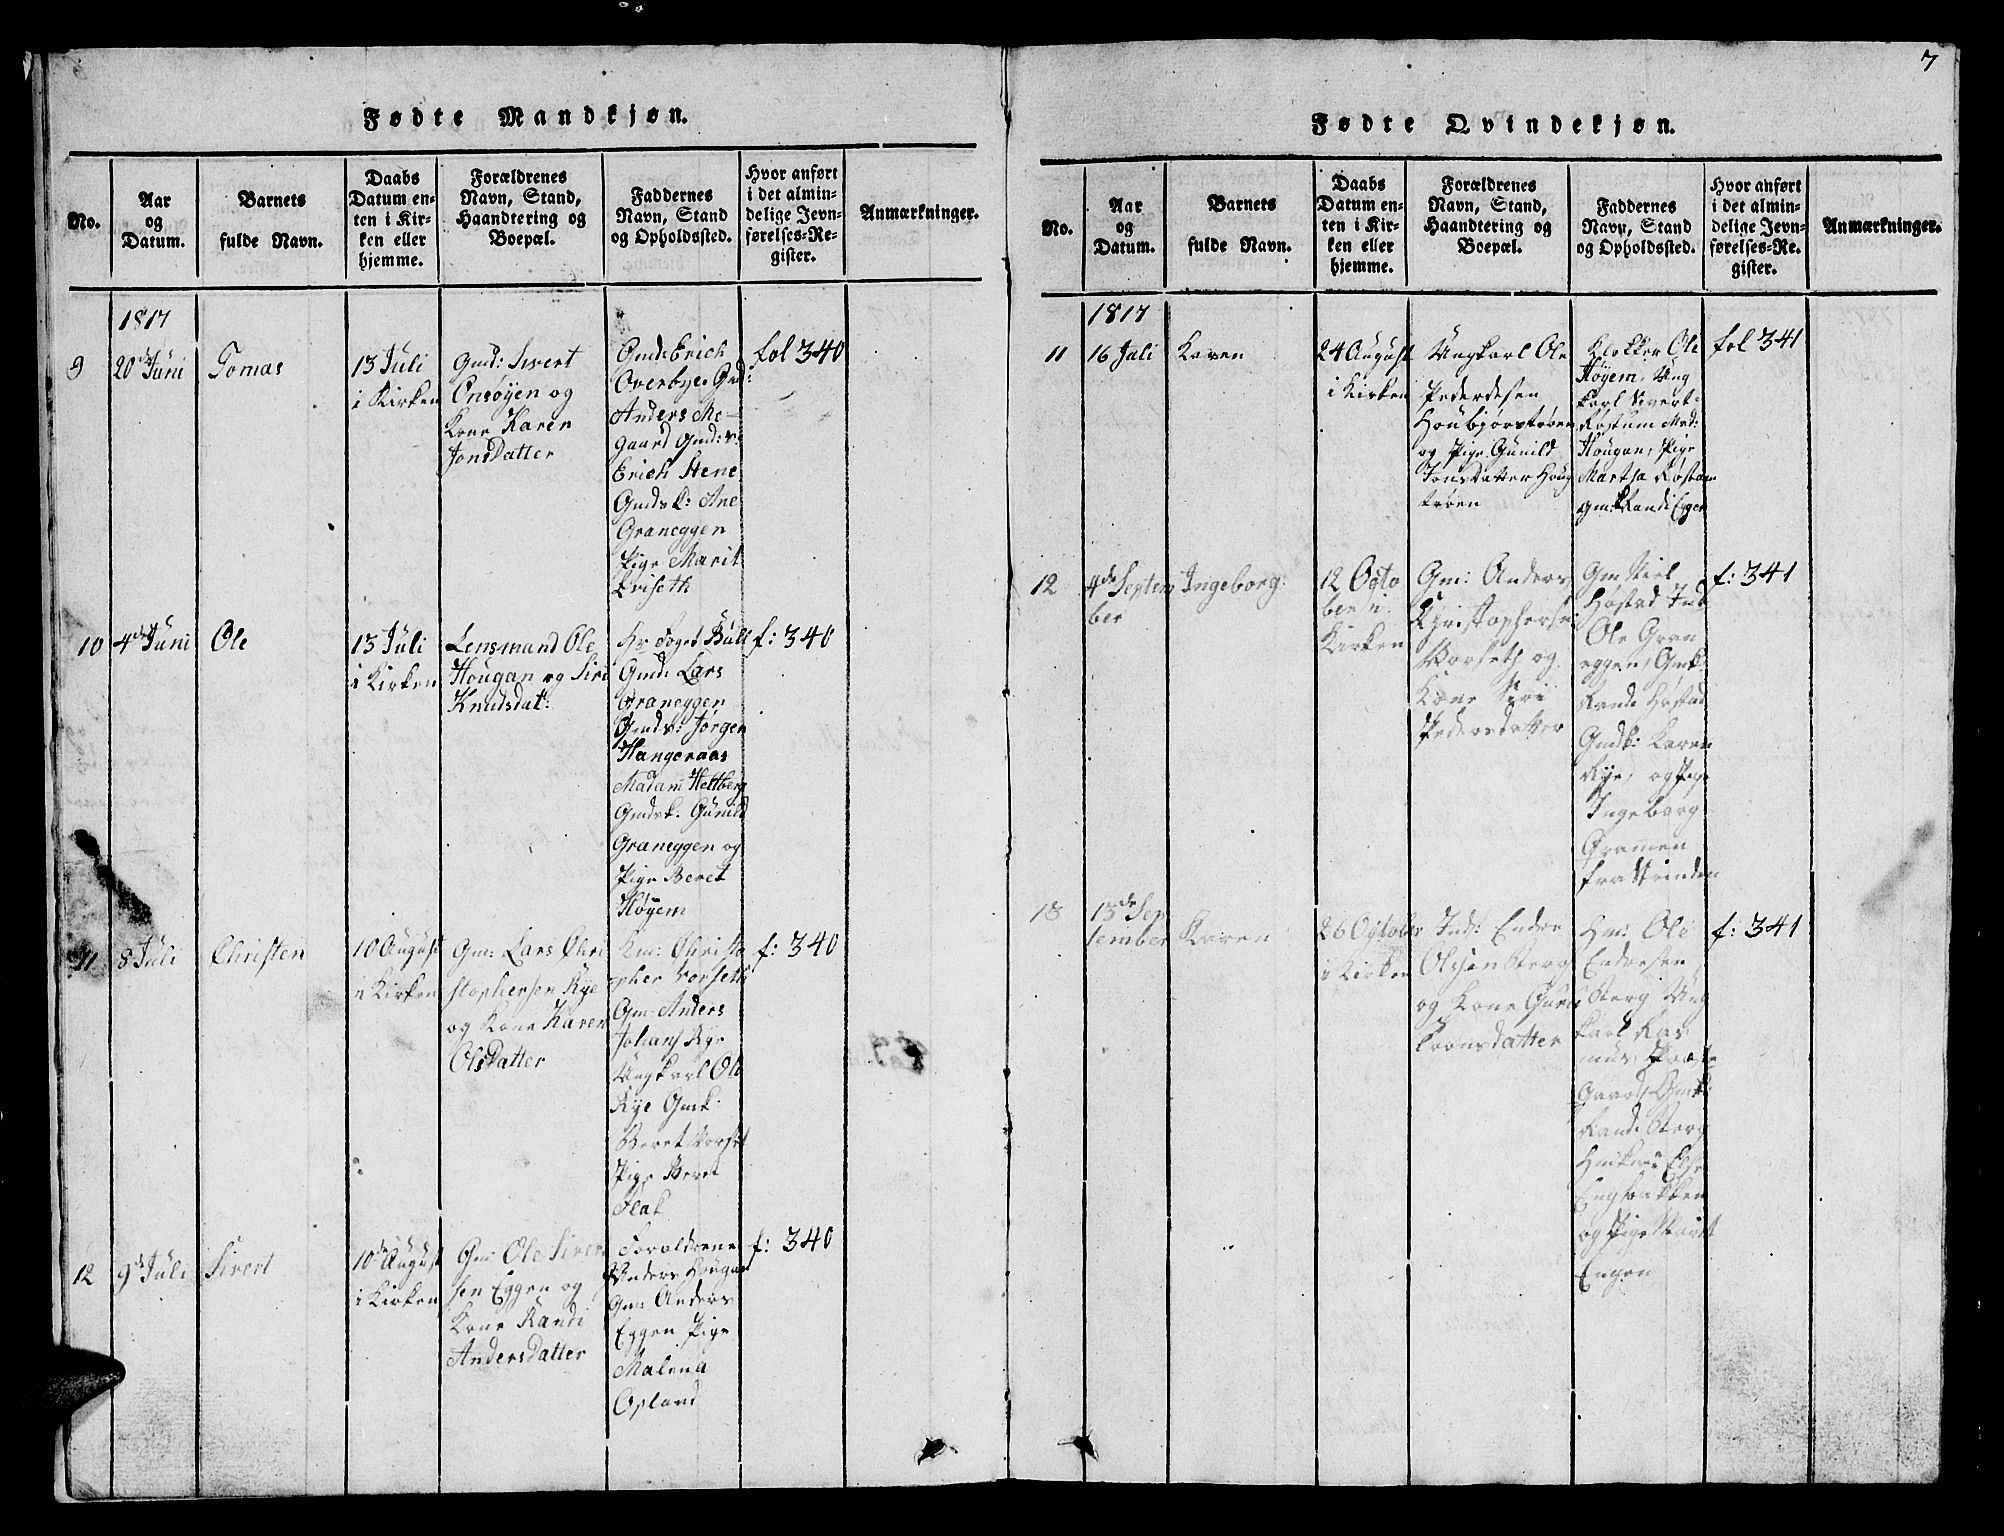 7
Fødte Mandkjøn.
No.
Aar
og
Datum.
Barnets
fulde Navn.
Daabs
Datum en-
ten i Kir-
ken eller
hjemme.
Forældrenes
Navn, Stand,
Haandtering og
Boepæl.
Faddernes
Navn, Stand
og Opholdssted.
Hvor anført
i det almin-
delige Jevn-
førelses-Re-
gister.
Anmærkninger.
1817
9
20de Juni
Tomas
13 Juli
i Kirken
Gmd: Sivert
Onsöyen og
Kone Karen
JonsDatter
Gmd: Erich
Overbye Gmd:
Anders Mo-
gaard Gmds:
Erich Stene
Gmdsk: Ane
Graneggen
Pige Marit
Eviseth
fol 340
10
4de Juni
Ole
13 Juli
i Kirken
Lensmand Ole
Hougan og Siri
Knudsdat:
Hr Foget Bull
Gmd: Lars
Graneggen
Gmds: Jørgen
Hangeraas
Madam Hettberg
Gmdsk: Gunild
Graneggen og
Pige Beret
Høyem
f: 340
11
8 Juli
Christen
10 August
i Kirken
Gm: Lars Chri
stophersen Rye
og Kone Karen
OlsDatter
Km: Christo
pher Vorseth
Gm: Anders
Johans Rye
Ungkarl Ole
Rye Gmk:
Beret Vorset
Pige Beret
Flak
f: 340
12
9de Juli
Sivert
10de August
i Kirken
Gm: Ole Siver
sen Eggen og
Kone Randi
AndersDatter
Forældrene
Anders Hougan
Gm: Anders
Eggen Pige
Malena
Opland
f: 340
Fødte Qvindekjøn.
No.
Aar
og
Datum.
Barnets
fulde Navn.
Daabs
Datum en-
ten i Kir-
ken eller
hjemme.
Forældrenes
Navn, Stand,
Haandtering og
Boepæl.
Faddernes
Navn, Stand
og Opholdssted.
Hvor anført
i det almin-
delige Jevn-
førelses-Re-
gister.
Anmærkninger.
1817
11
16 Juli
Karen
24 August
i Kirken
Ungkarl Ole
Pedersen
Houbjørstrøen
og Pige Gunild
Jonsdatter Houg
trøen
Klokker Ole
Høyem, Ung
karl Sivert
Røstum Mad:
Hougan, Pige
Martha Røstum
gmk Randi Eggen
fol 341
12
4de Septem
ber
Ingeborg
12 Octo
ber i
Kirken
Gm: Anders
Christophersen
Vorseth og
Kone Siri
Pedersdatter
Gm Niel
Høstad Ind
Ole Gran
eggen, Gmk:
Randi Høstad
Gmdk: Karen
Rye, og Pige
Ingeborg
Gramen
fra Strinden
f: 341
13
13de Sep
tember
Karen
26 October
i Kirken
Ind: Endre
Olsen Berg
og Kone Guru
Toonsdatter
Hm: Ole
Endresen
Berg Ung
karl Ras
mus Præste
Gaard, Gmk:
Randi Berg
Else
og Pige Marit
Engen
f: 341